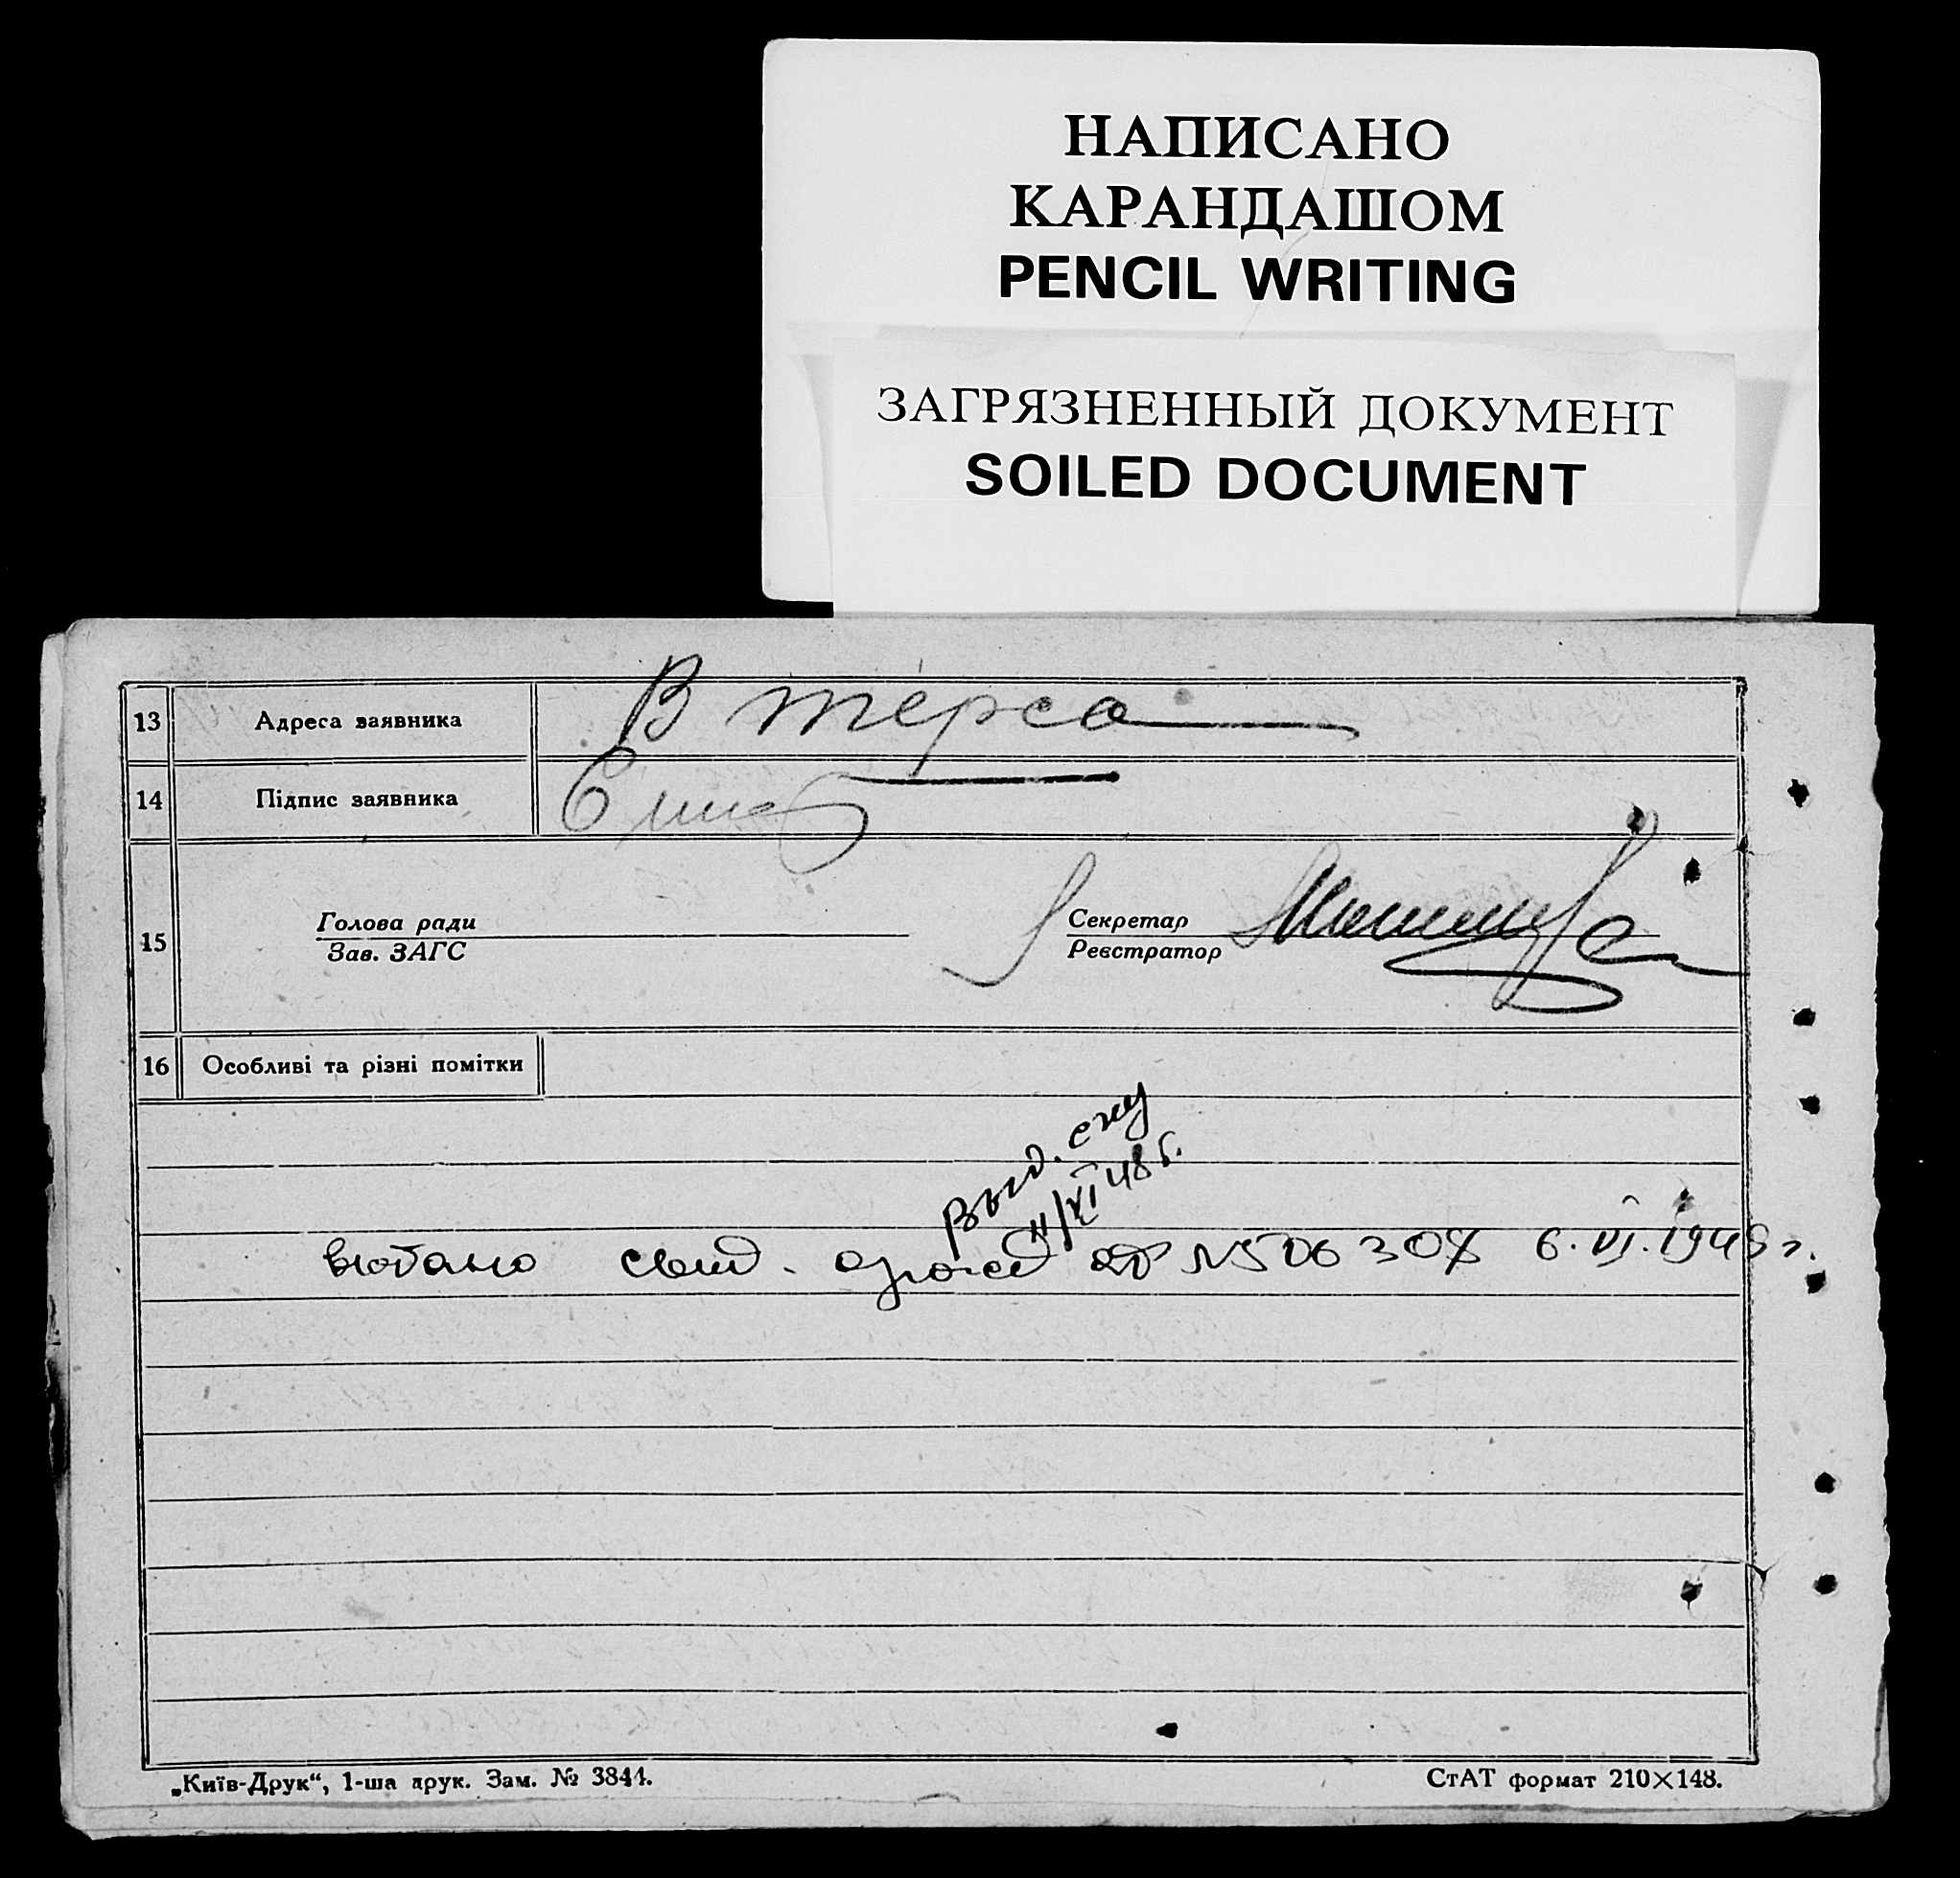 НАПИСАНО
КАРАНДАШОМ
PENCIL WRITING
ЗАГРЯЗНЕННЫЙ ДОКУМЕНТ
SOILED DOCUMENT
13 Адреса заявника В терса
14 Підпис заявника
15 Голова ради
Зав. ЗАГС
Секретар
Реєстратор
16 Особливі та різні помітки
Выд. спу
11/XI 48 г.
видано свид. о рожд № 506307 6. VI. 1948 г.
„Київ-Друк“, 1-ша друк. Зам. № 3844.
СтАТ формат 210×148.